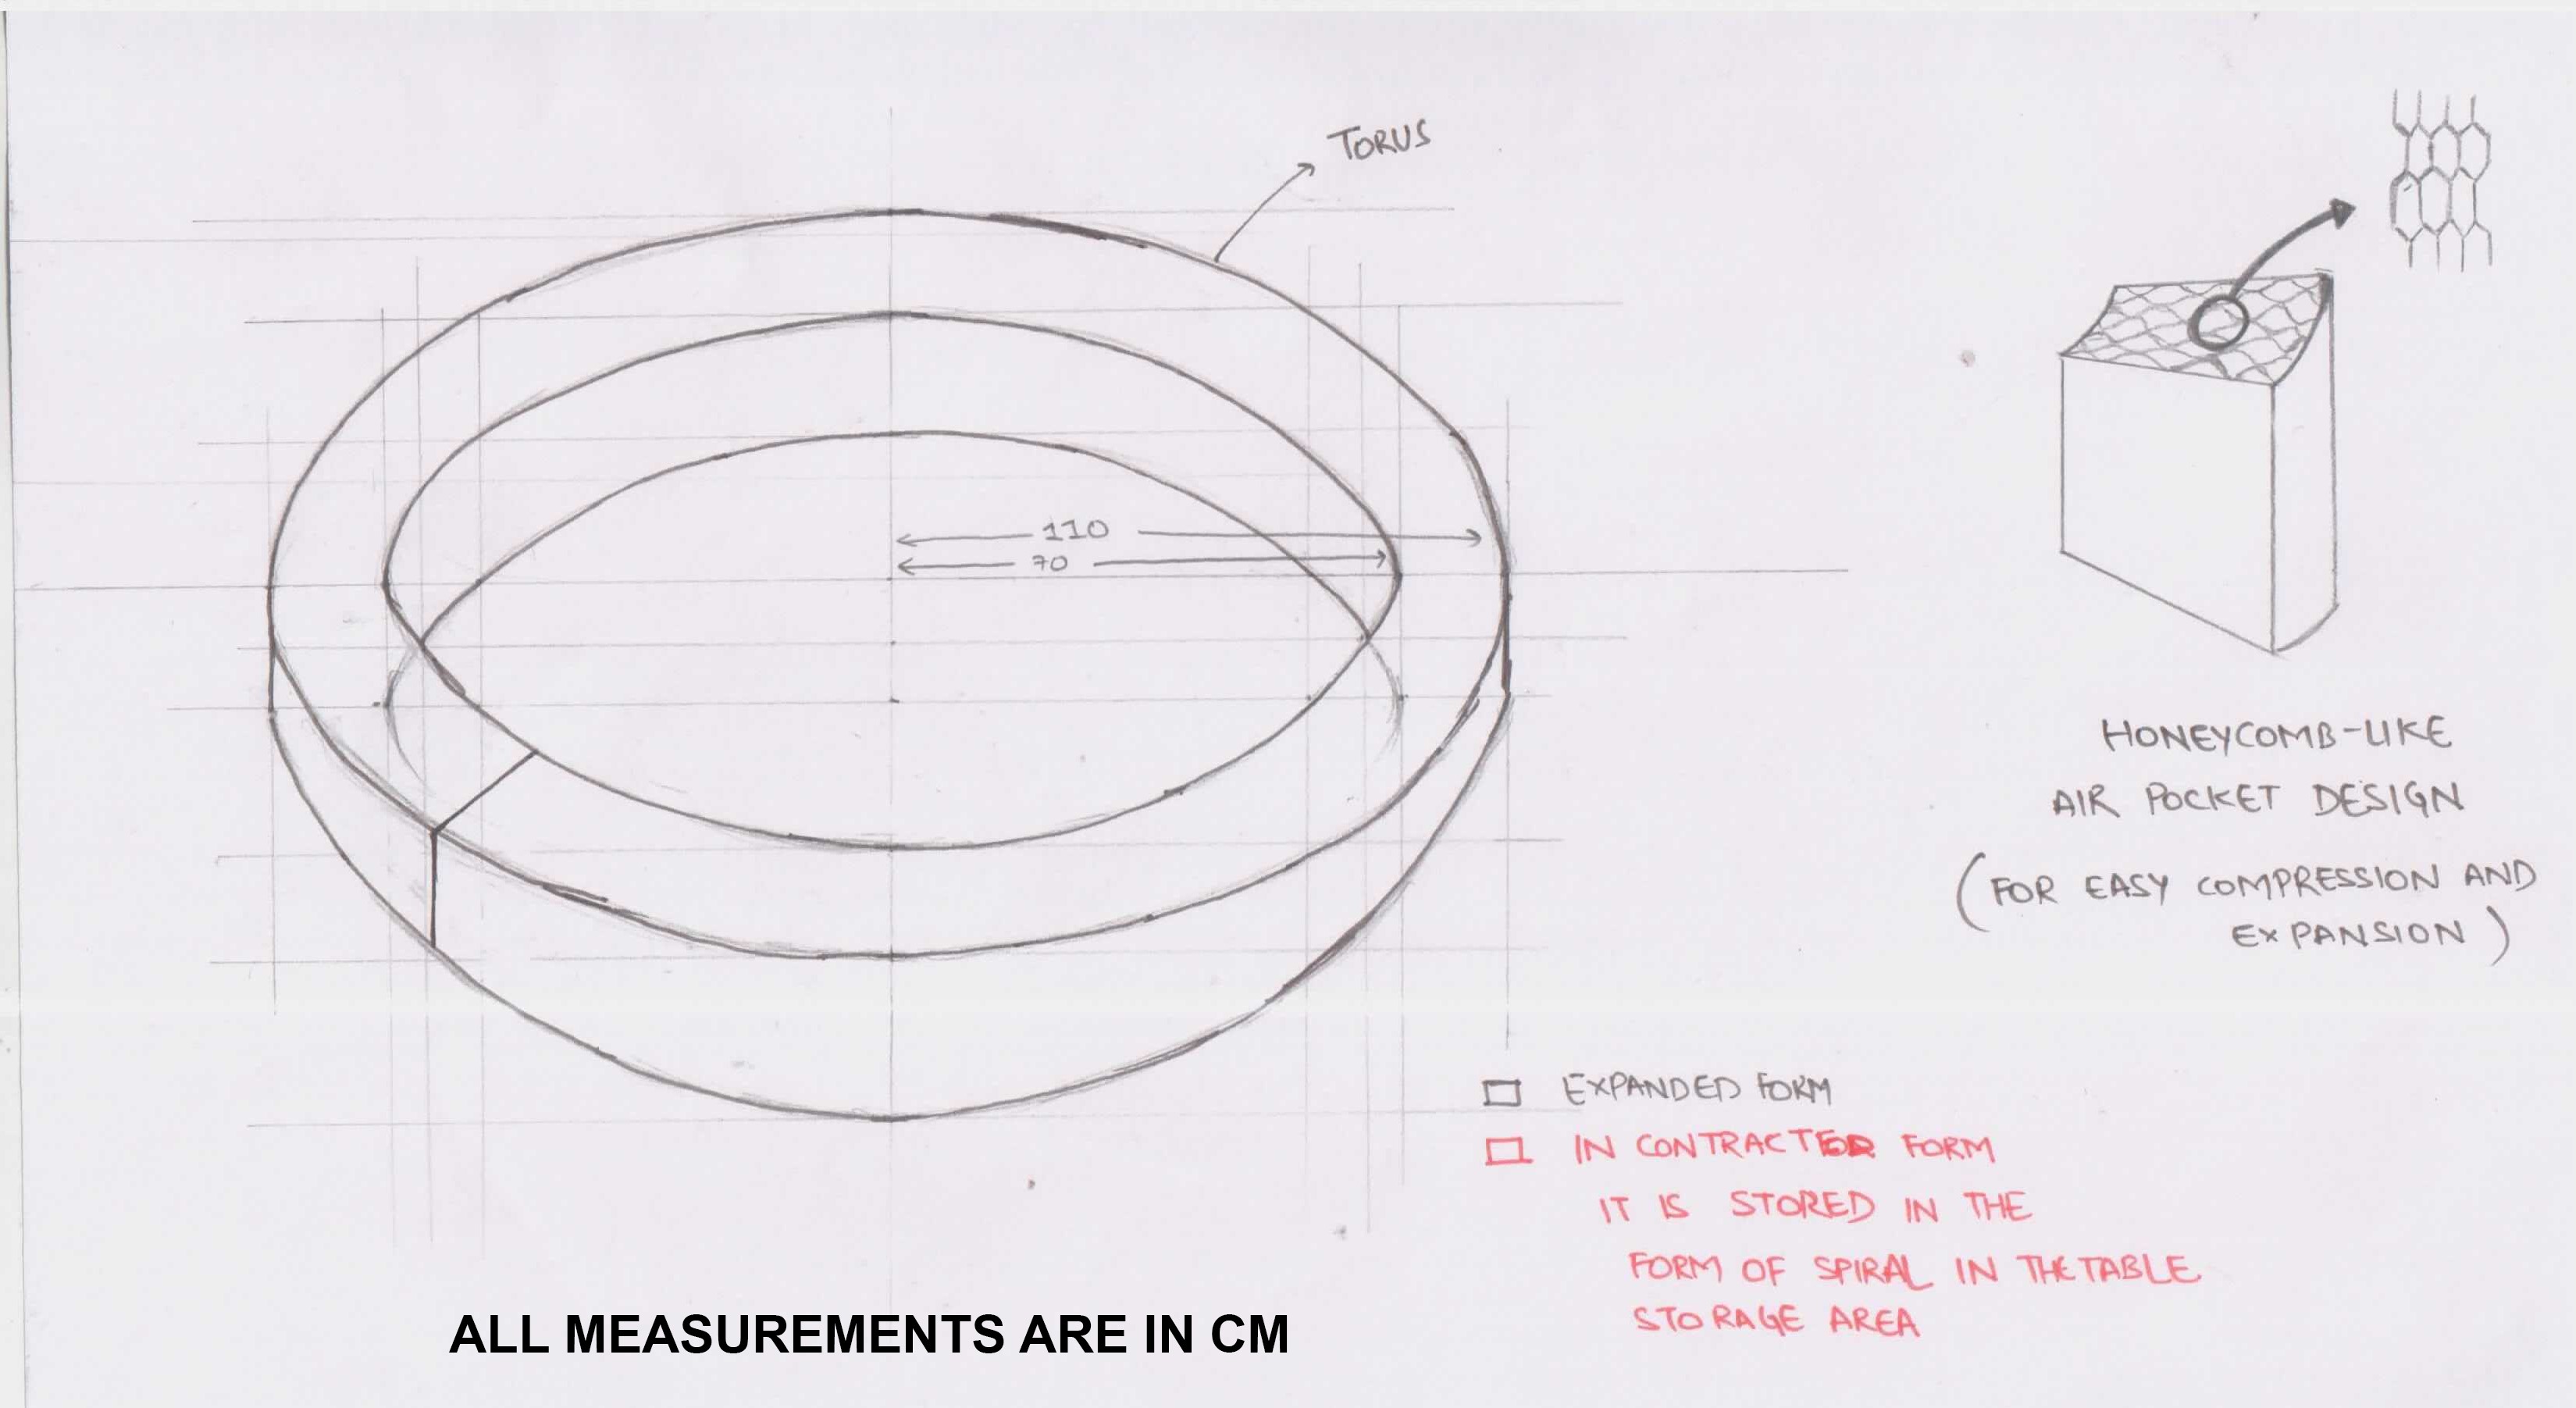 TORUS
110
70
HONEYCOMB-LIKE
AIR POCKET DESIGN
(FOR EASY COMPRESSION AND
EXPANSION)
EXPANDED FORM
IN CONTRACTED FORM
IT IS STORED IN THE
FORM OF SPIRAL IN THE TABLE
STORAGE AREA
ALL MEASUREMENTS ARE IN CM